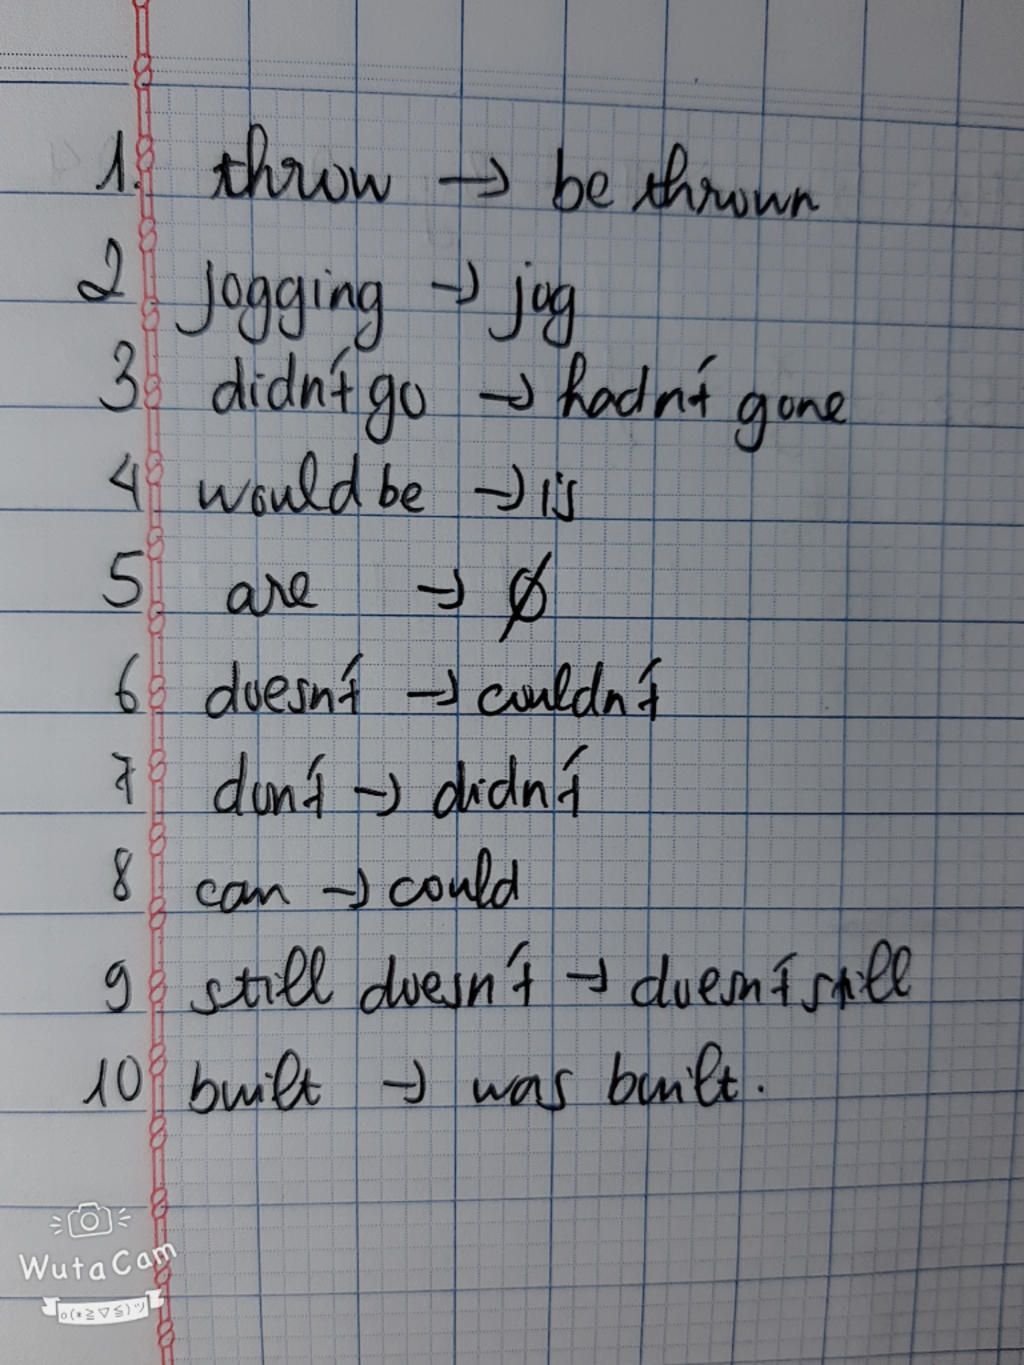 1. throw → be thrown
2 jogging → jog
3 didn't go → hadn't gone
4 would be → is
5 are → Ø
6 doesn't → couldn't
7 don't → didn't
8 can → could
9 still doesn't → doesn't still
10 built → was built.
WutaCam
o(*≧▽≦)ツ